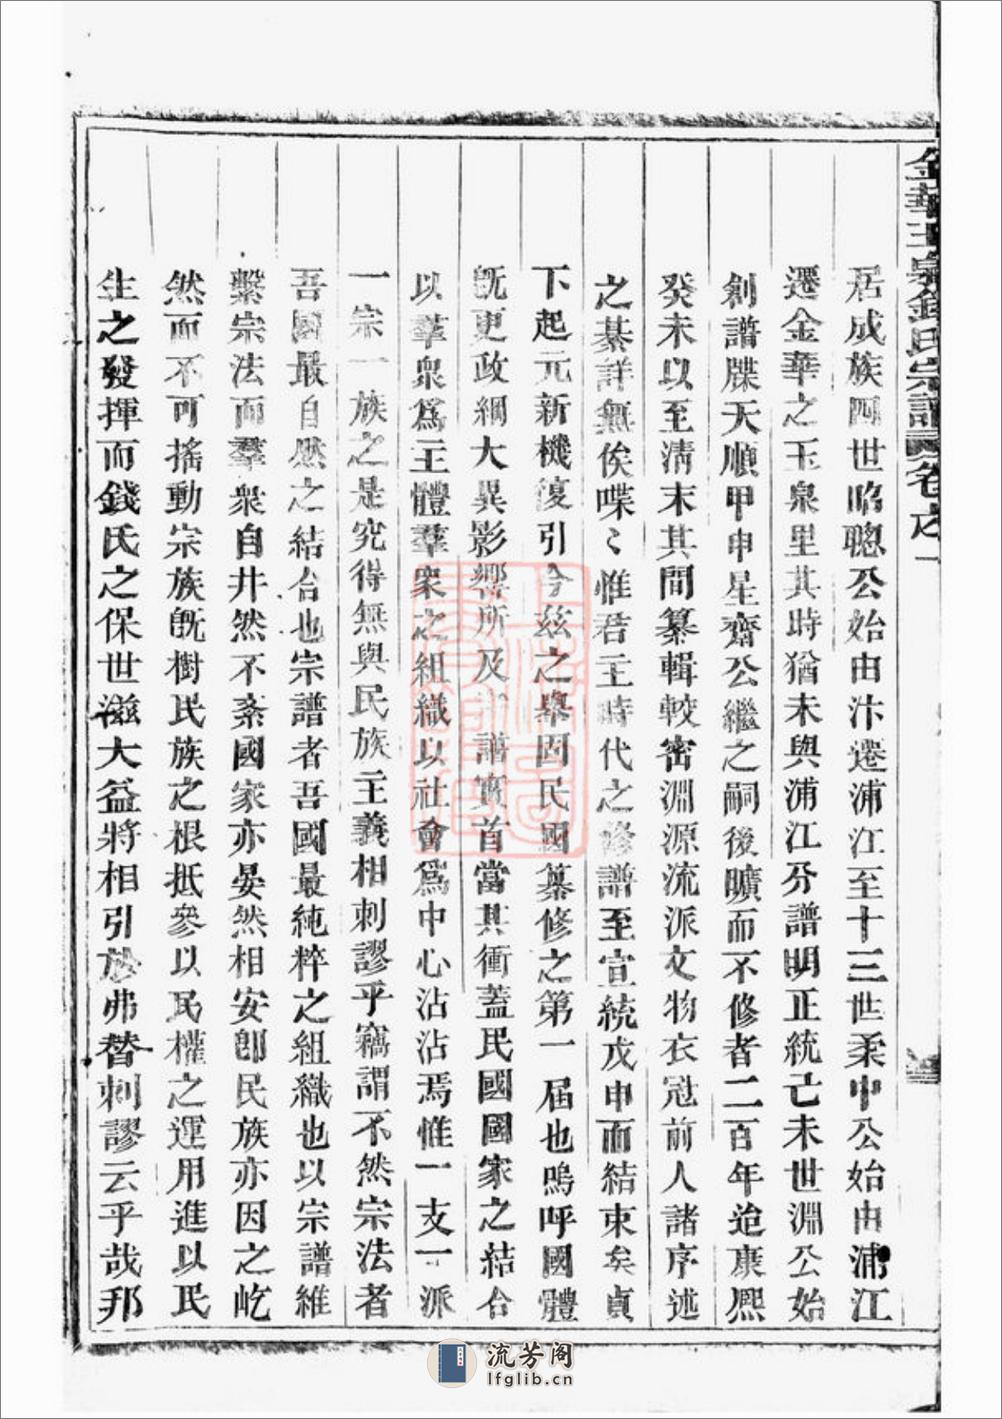 金華玉泉錢氏宗譜 卷之一
居成族四世昭聰公始由汴遷浦江至十三世柔中公始由浦江
遷金華之玉泉里其時猶未與浦江分譜明正統己未世淵公始
創譜牒天順甲申星齋公繼之嗣後曠而不修者二百年迨康熙
癸未以至清末其間纂輯較密淵源流派文物衣冠前人諸序述
之綦詳無俟喋〻惟君主時代之修譜至宣統戊申而結束矣貞
下起元新機復引今茲之舉固民國纂修之第一屆也嗚呼國體
旣更政綱大異影響所及譜實首當其衝蓋民國國家之結合
以羣衆爲主體羣衆之組織以社會爲中心沾沾焉惟一支一派
一宗一族之是究得無與民族主義相刺謬乎竊謂不然宗法者
吾國最自然之結合也宗譜者吾國最純粹之組織也以宗譜維
繫宗法而羣衆自井然不紊國家亦晏然相安卽民族亦因之屹
然而不可搖動宗族旣樹民族之根抵參以民權之運用進以民
生之發揮而錢氏之保世滋大益將相引於弗替刺謬云乎哉邦
流芳阁
lfglib.cn